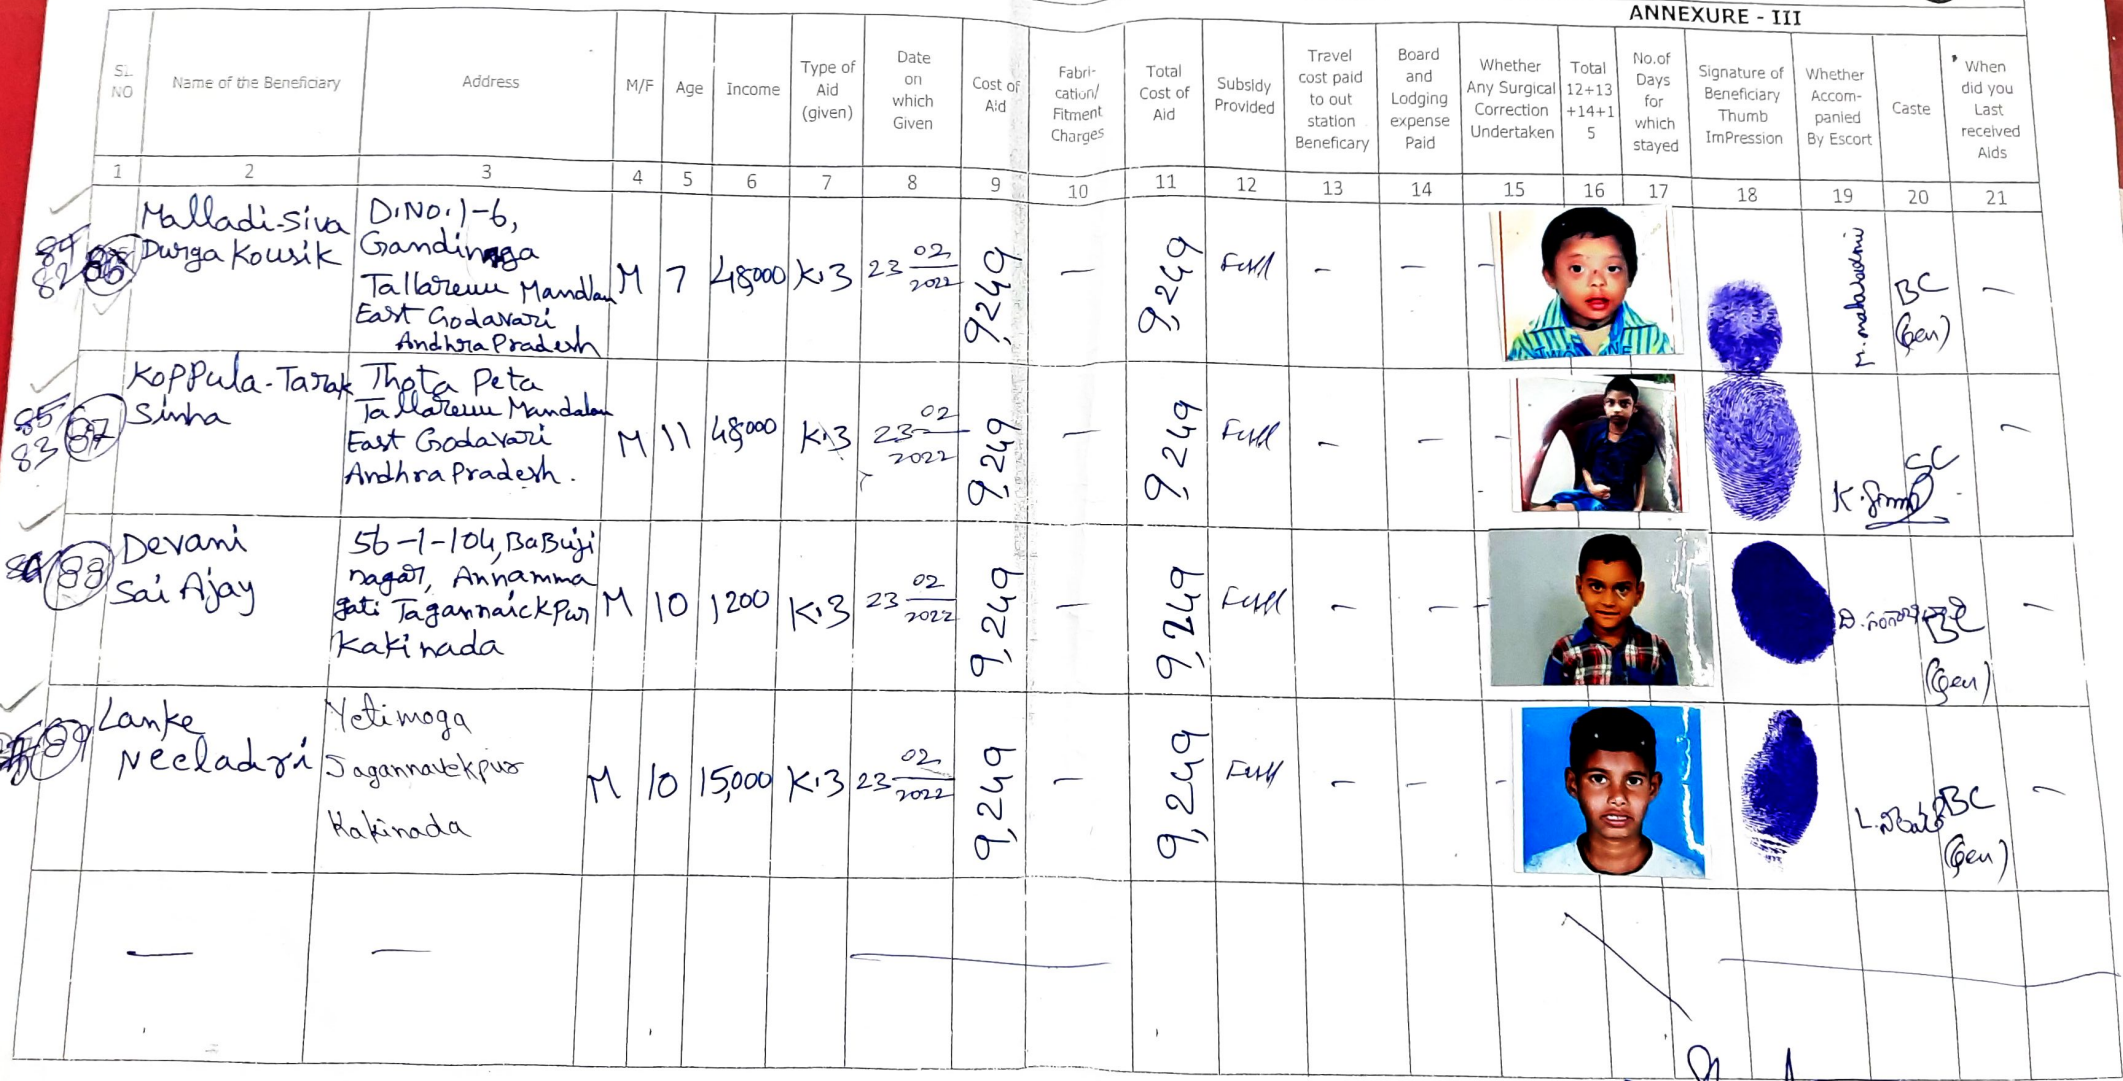 ANNEXURE - III
SL. NO
Name of the Beneficiary
Address
M/F
Age
Income
Type of
Aid
(given)
Date
on
which
Given
Cost of
Aid
Fabri-
cation/
Fitment
Charges
Total
Cost of
Aid
Subsidy
Provided
Travel
cost paid
to out
station
Beneficary
Board
and
Lodging
expense
Paid
Whether
Any Surgical
Correction
Undertaken
Total
12+13
+14+1
5
No.of
Days
for
which
stayed
Signature of
Beneficiary
Thumb
ImPression
Whether
Accom-
panied
By Escort
Caste
When
did you
Last
received
Aids
1 2 3 4 5 6 7 8 9 10 11 12 13 14 15 16 17 18 19 20 21
84
82 86
Malladi-Siva
Durga Kousik
D.No.1-6,
Tallarevu Mandlam
East Godavari
Andhra Pradesh
M 7 48,000 K.3 23 02/2022 9,249 - 9,249 Full - - - BC -
(Gen)
85
83 87
Koppula-Tarak
Sinha
Thota Peta
Tallarevu Mandalam
East Godavari
Andhra Pradesh.
M 11 48,000 K.3 23 02/2022 9,249 - 9,249 Full - - - SC -
88
Devani
Sai Ajay
56-1-104, BaBuji
nagar, Annamma
gati Jagannaickpur
Kakinada
M 10 1,200 K.3 23 02/2022 9,249 - 9,249 Full - - - BC -
(Gen)
89
Lanke
Neeladri
Yetimoga
Jagannaickpur
Kakinada
M 10 15,000 K.3 23 02/2022 9,249 - 9,249 Full - - - BC -
(Gen)